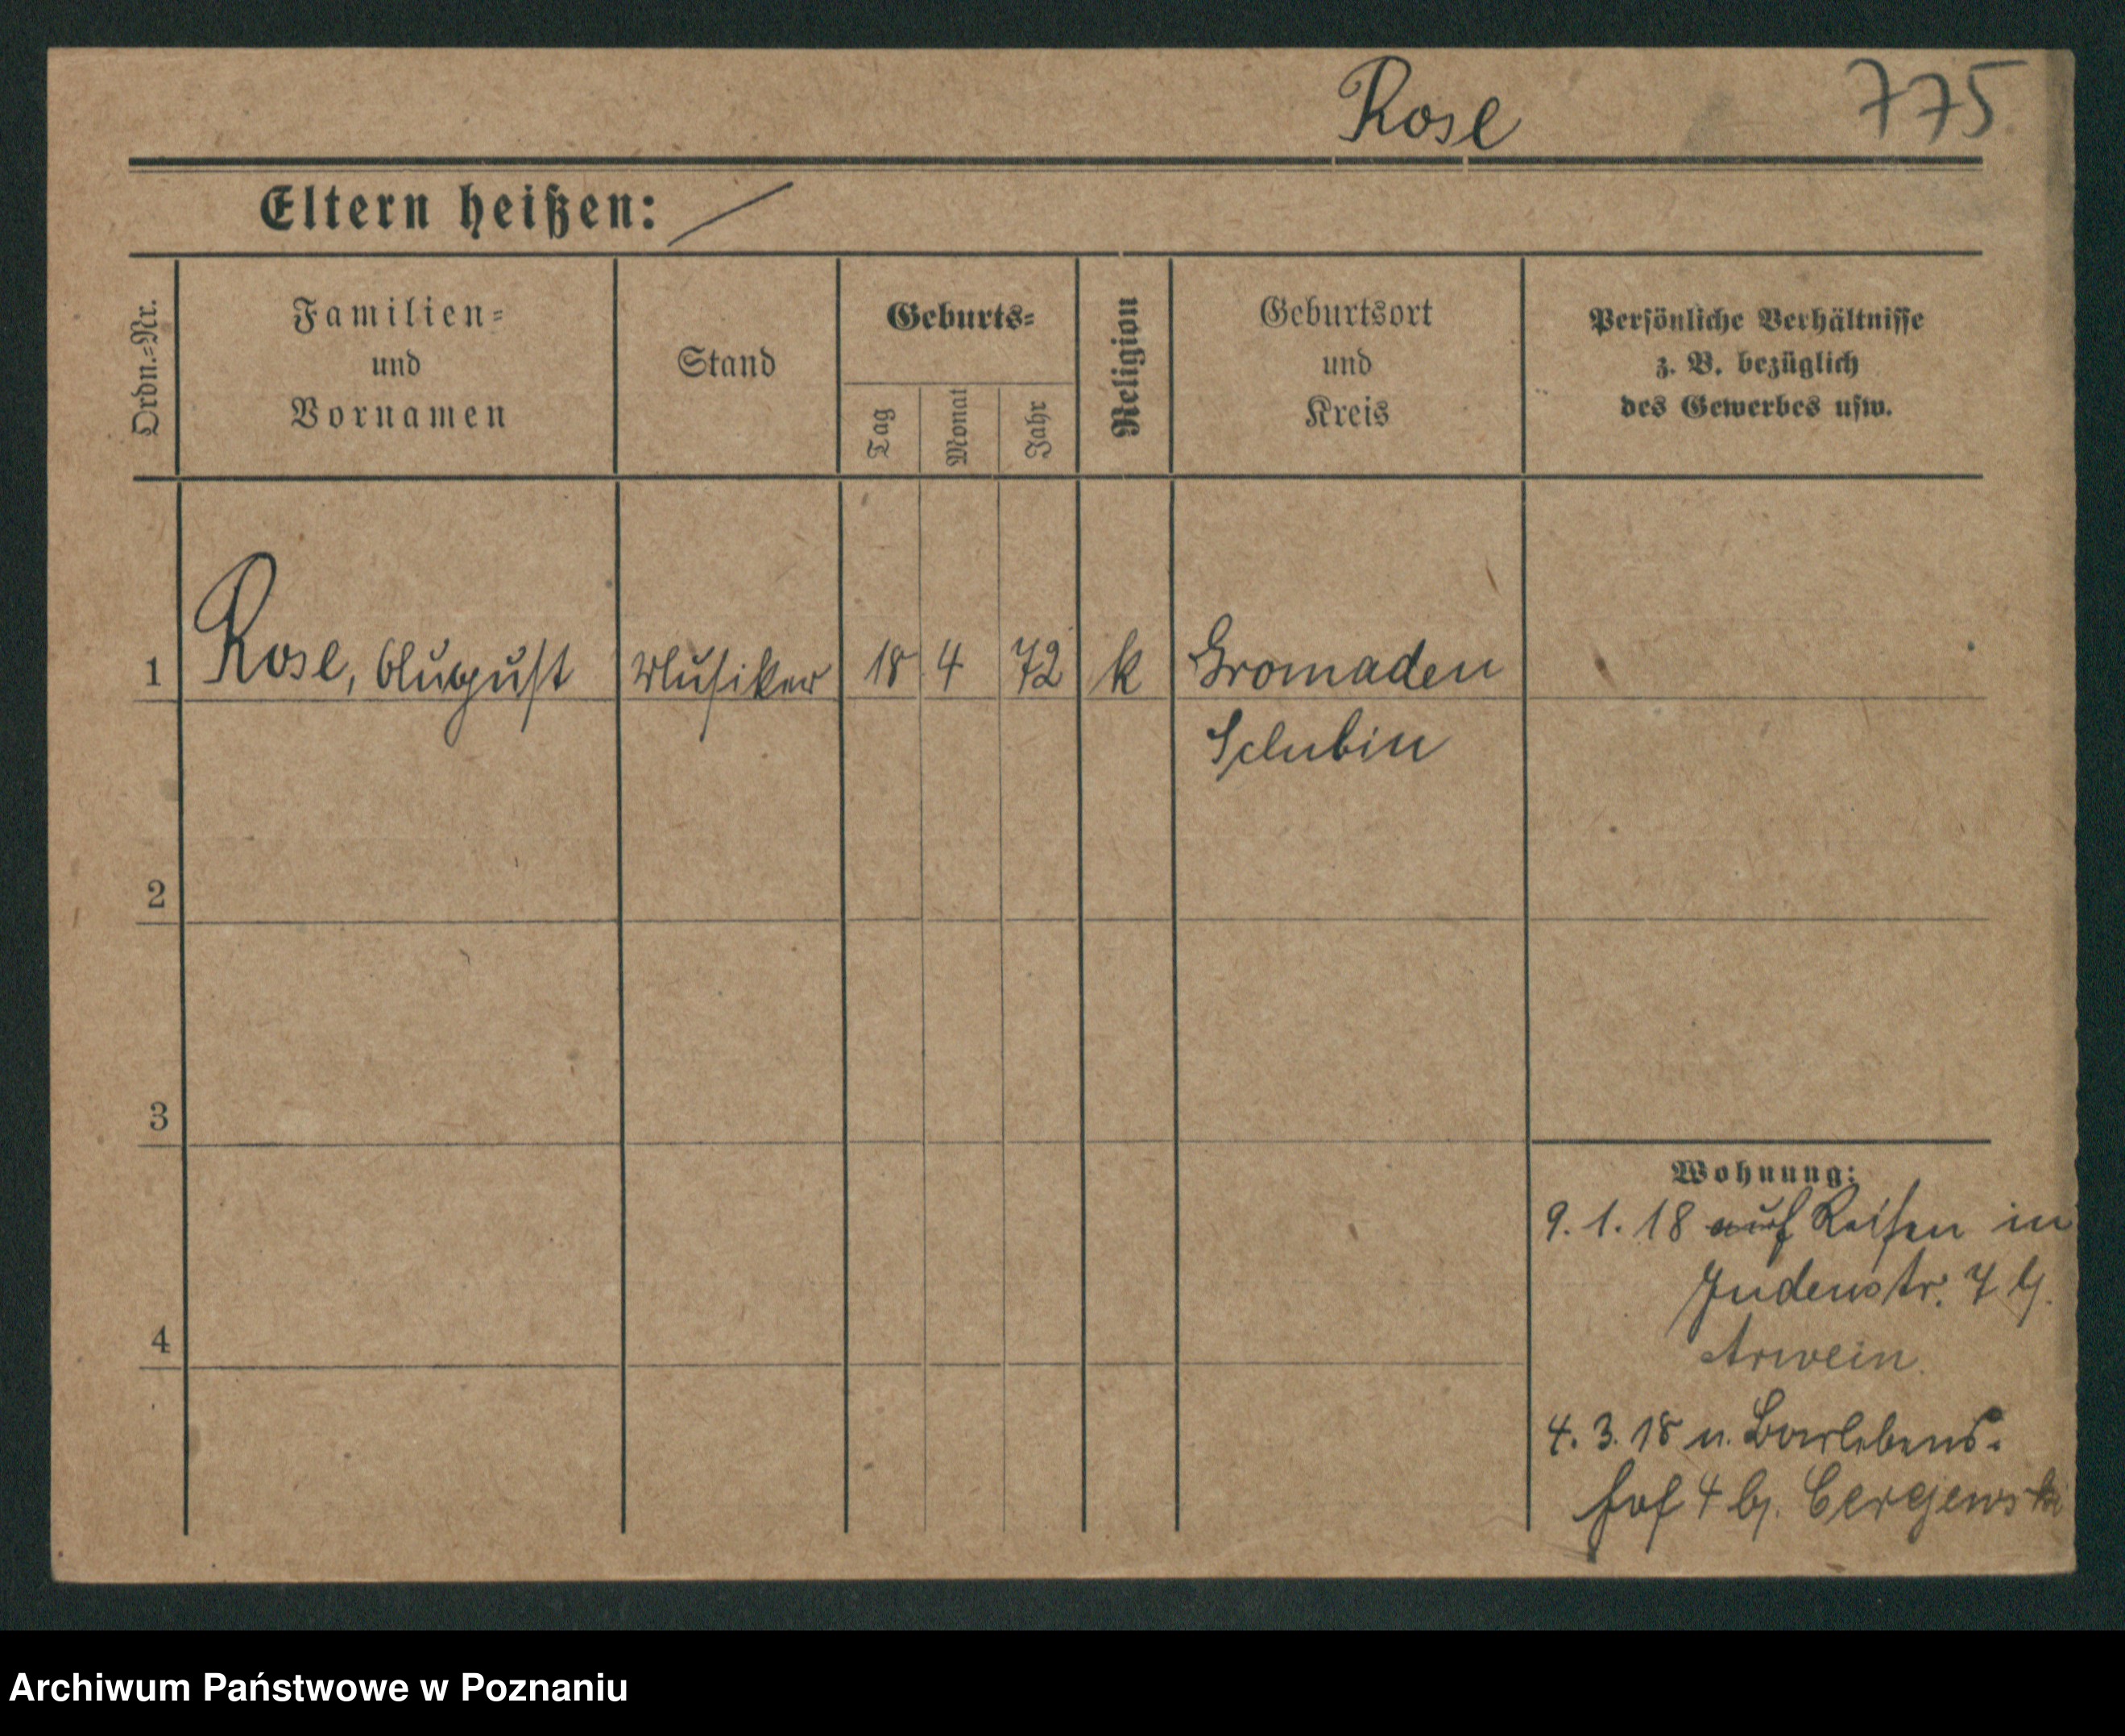 Rose 775
Eltern heißen: /
Ordn.=Nr.
Familien=
und
Vornamen
Stand
Geburts=
Tag
Monat
Jahr
Religion
Geburtsort
und
Kreis
Persönliche Verhältnisse
z. B. bezüglich
des Gewerbes usw.
1 Rose, August Musiker 18 4 72 k Gromaden
Schubin
2
3
4
Wohnung:
9.1.18 auf Reisen in
Judenstr. 7 b.
Arwein.
4.3.18 n. Barlebens-
hof 4 b.
Archiwum Państwowe w Poznaniu